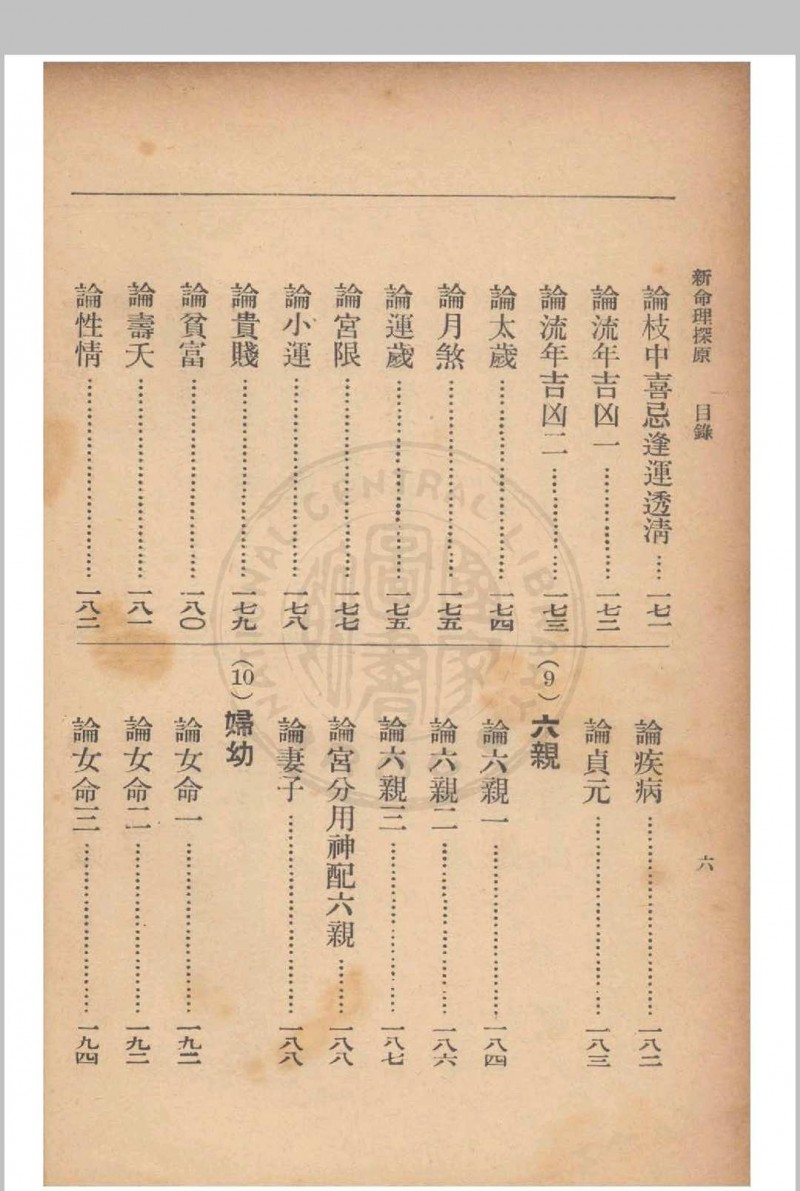 新命理探原　目錄
六
論枝中喜忌逢運透清……一七一
論流年吉凶一……一七二
論流年吉凶二……一七三
論太歲……一七四
論月煞……一七五
論運歲……一七五
論宮限……一七七
論小運……一七八
論貴賤……一七九
論貧富……一八〇
論壽夭……一八一
論性情……一八二
論疾病……一八二
論貞元……一八三
（9）六親
論六親一……一八四
論六親二……一八六
論六親三……一八七
論宮分用神配六親……一八八
論妻子……一八八
（10）婦幼
論女命一……一九二
論女命二……一九二
論女命三……一九四
NATIONAL CENTRAL LIBRARY